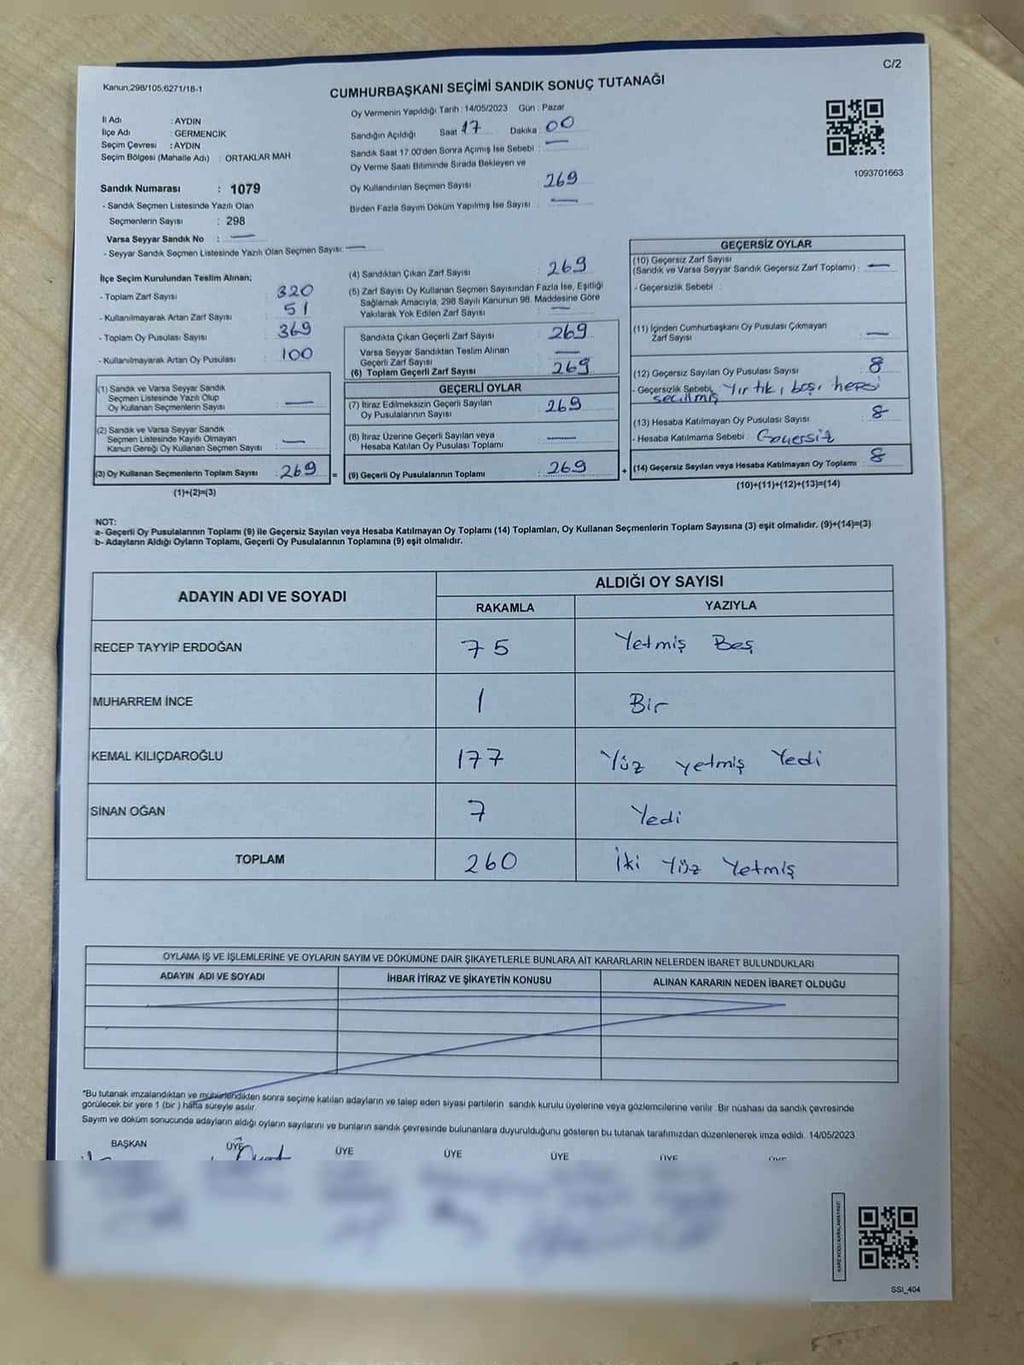 C/2
Kanun:298/105;6271/18-1
CUMHURBAŞKANI SEÇİMİ SANDIK SONUÇ TUTANAĞI
Oy Vermenin Yapıldığı Tarih : 14/05/2023 Gün : Pazar
İl Adı : AYDIN
İlçe Adı : GERMENCİK
Seçim Çevresi : AYDIN
Seçim Bölgesi (Mahalle Adı) : ORTAKLAR MAH
Sandığın Açıldığı Saat 17 Dakika : 00
Sandık Saat 17.00'den Sonra Açılmış İse Sebebi : —
Oy Verme Saati Bitiminde Sırada Bekleyen ve
Oy Kullandırılan Seçmen Sayısı : 269
Birden Fazla Sayım Döküm Yapılmış İse Sayısı : —
1093701663
Sandık Numarası : 1079
- Sandık Seçmen Listesinde Yazılı Olan
Seçmenlerin Sayısı : 298
Varsa Seyyar Sandık No : —
- Seyyar Sandık Seçmen Listesinde Yazılı Olan Seçmen Sayısı: —
İlçe Seçim Kurulundan Teslim Alınan;
- Toplam Zarf Sayısı 320
- Kullanılmayarak Artan Zarf Sayısı 51
- Toplam Oy Pusulası Sayısı 369
- Kullanılmayarak Artan Oy Pusulası 100
(1) Sandık ve Varsa Seyyar Sandık
Seçmen Listesinde Yazılı Olup
Oy Kullanan Seçmenlerin Sayısı —
(2) Sandık ve Varsa Seyyar Sandık
Seçmen Listesinde Kayıtlı Olmayan
Kanun Gereği Oy Kullanan Seçmen Sayısı —
(3) Oy Kullanan Seçmenlerin Toplam Sayısı 269 =
(1)+(2)=(3)
(4) Sandıktan Çıkan Zarf Sayısı 269
(5) Zarf Sayısı Oy Kullanan Seçmen Sayısından Fazla İse, Eşitliği
Sağlamak Amacıyla, 298 Sayılı Kanunun 98. Maddesine Göre
Yakılarak Yok Edilen Zarf Sayısı —
Sandıkta Çıkan Geçerli Zarf Sayısı 269
Varsa Seyyar Sandıktan Teslim Alınan
Geçerli Zarf Sayısı —
(6) Toplam Geçerli Zarf Sayısı 269
GEÇERLİ OYLAR
(7) İtiraz Edilmeksizin Geçerli Sayılan
Oy Pusulalarının Sayısı 269
(8) İtiraz Üzerine Geçerli Sayılan veya
Hesaba Katılan Oy Pusulası Toplamı —
(9) Geçerli Oy Pusulalarının Toplamı 269 +
GEÇERSİZ OYLAR
(10) Geçersiz Zarf Sayısı
(Sandık ve Varsa Seyyar Sandık Geçersiz Zarf Toplamı) : —
- Geçersizlik Sebebi :
(11) İçinden Cumhurbaşkanı Oy Pusulası Çıkmayan
Zarf Sayısı —
(12) Geçersiz Sayılan Oy Pusulası Sayısı 8
- Geçersizlik Sebebi: Yırtık, boş, hepsi
seçilmiş
(13) Hesaba Katılmayan Oy Pusulası Sayısı 8
- Hesaba Katılmama Sebebi : Geçersiz
(14) Geçersiz Sayılan veya Hesaba Katılmayan Oy Toplamı 8
(10)+(11)+(12)+(13)=(14)
NOT:
a- Geçerli Oy Pusulalarının Toplamı (9) ile Geçersiz Sayılan veya Hesaba Katılmayan Oy Toplamı (14) Toplamları, Oy Kullanan Seçmenlerin Toplam Sayısına (3) eşit olmalıdır. (9)+(14)=(3)
b- Adayların Aldığı Oyların Toplamı, Geçerli Oy Pusulalarının Toplamına (9) eşit olmalıdır.
ADAYIN ADI VE SOYADI
ALDIĞI OY SAYISI
RAKAMLA YAZIYLA
RECEP TAYYİP ERDOĞAN 75 Yetmiş Beş
MUHARREM İNCE 1 Bir
KEMAL KILIÇDAROĞLU 177 Yüz yetmiş Yedi
SİNAN OĞAN 7 Yedi
TOPLAM 260 İki Yüz Yetmiş
OYLAMA İŞ VE İŞLEMLERİNE VE OYLARIN SAYIM VE DÖKÜMÜNE DAİR ŞİKAYETLERLE BUNLARA AİT KARARLARIN NELERDEN İBARET BULUNDUKLARI
ADAYIN ADI VE SOYADI İHBAR İTİRAZ VE ŞİKAYETİN KONUSU ALINAN KARARIN NEDEN İBARET OLDUĞU
*Bu tutanak imzalandıktan ve mühürlendikten sonra seçime katılan adayların ve talep eden siyasi partilerin sandık kurulu üyelerine veya gözlemcilerine verilir. Bir nüshası da sandık çevresinde
görülecek bir yere 1 (bir ) hafta süreyle asılır.
Sayım ve döküm sonucunda adayların aldığı oyların sayılarını ve bunların sandık çevresinde bulunanlara duyurulduğunu gösteren bu tutanak tarafımızdan düzenlenerek imza edildi. 14/05/2023
BAŞKAN ÜYE ÜYE ÜYE ÜYE ÜYE
SSI_404